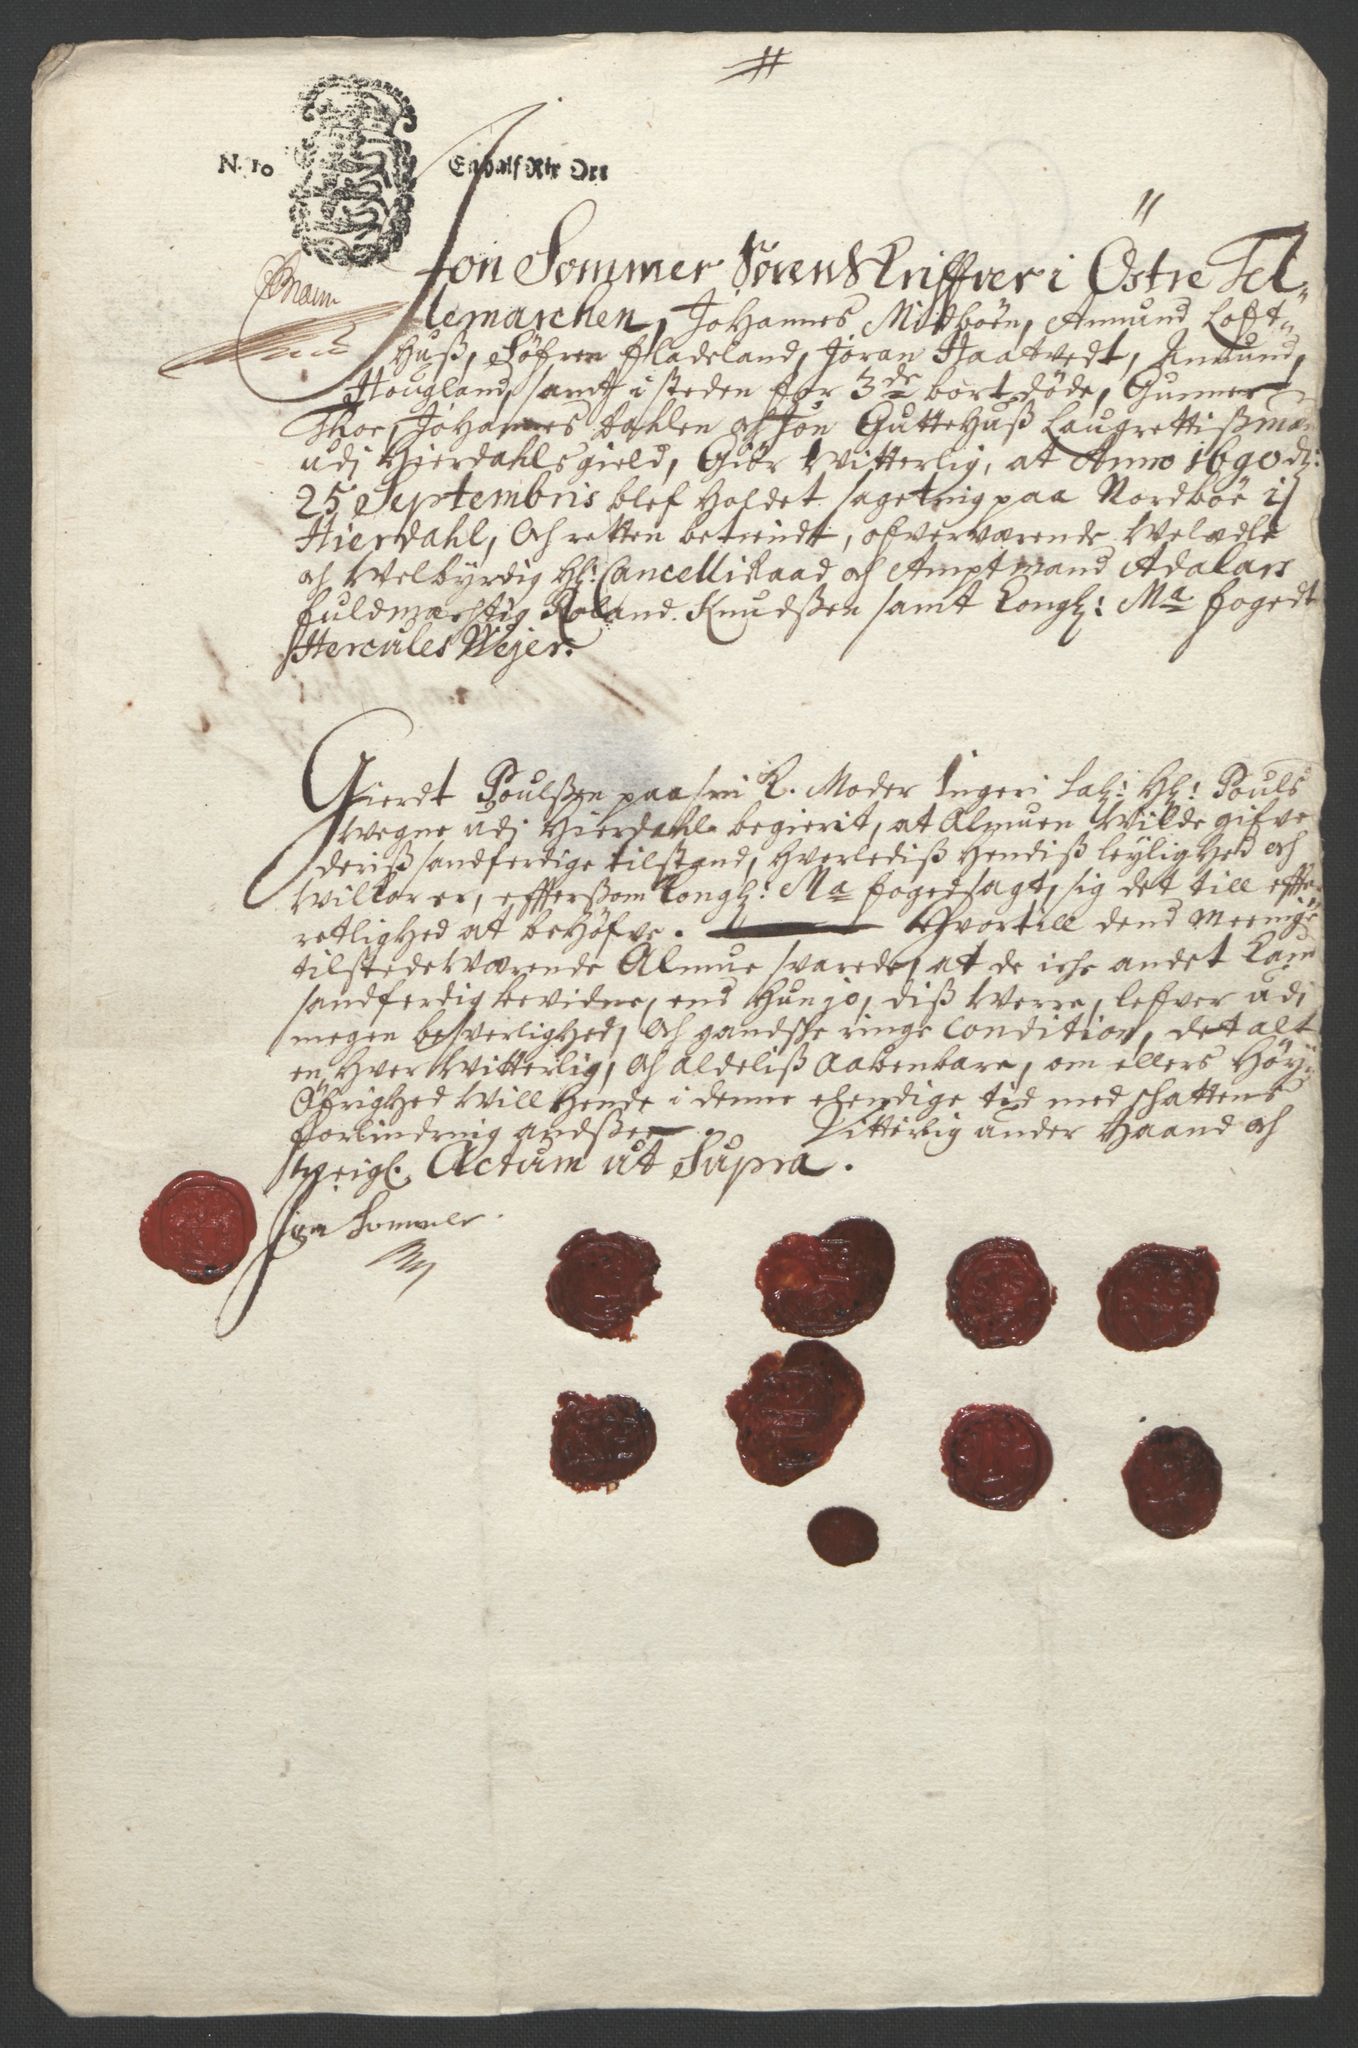 N. 10 En half Rix Ort
Jon Sommer Sörenskriffver i Östre Tel-
lemarchen, Johannes Midböen, Amund Loft-
huß, Söfren Fladeland, Jöran Haatvedt, Amund
Hougland, samt i steden for 3de bortdöde, Gunner
Thoe, Johannes Dahlen och Jon Guttehuß Laugrettißmænd
udj Hierdahls gield, Giör Witterlig, at Anno 1690 d:
25 Septembris blef holdet sageting paa Nordböe i
Hierdahl, och retten betiendt, ofververende Welædle
och Welbÿrdig Hr: Cancelliraad och Amptmand Adalars
fuldmechtig Roland Knudßen samt Kongl: Ma fogedt
Hercules Wejer.
Gierdt Poulßen paa sin K. Moder Ingeri Sal: Hr: Pouls
Wegne udj Hierdahl begierit, at Almuen Wilde gifve
deriß sandferdige tilstand, hverlediß hendiß leylighed och
Willkor er, effterßom Kongl: Ma foged sagt, sig det till effter-
retlighed at behöfve. Hvortill dend Meenige
tilstedeværende Almue svarede, at de iche andet Kand
sandferdig bevidne, end hun jo, diß Werre, lefver udj
megen besverlighed, och gandske ringe Condition, det alt
en hver Witterlig, och aldeliß aabenbare, om ellers Höy-
Öfrighed Will hende i denne elendige tid med schattens
forlindring andßee. Vitterlig under Haand och
Zeigl. Actum ut Supra.
Jon Sommer